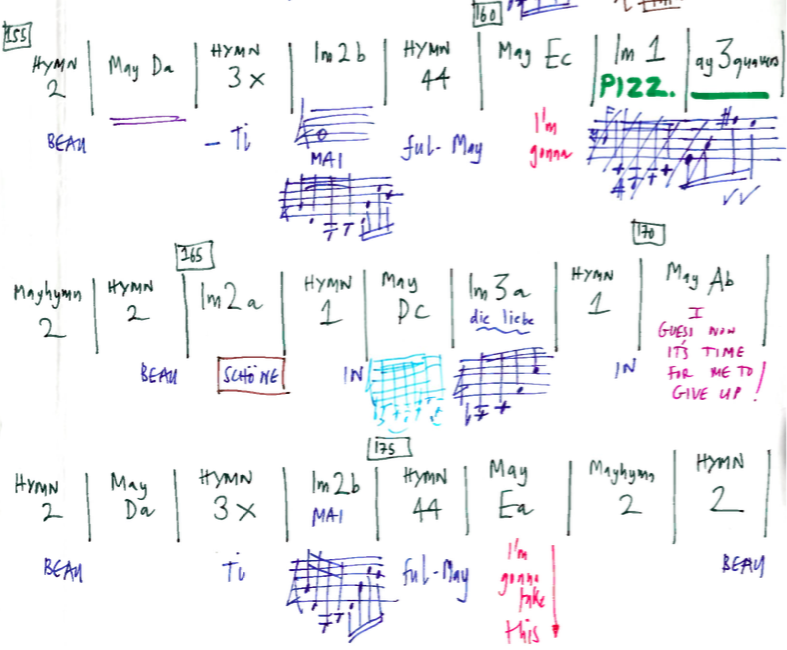 155
160
HYMN 2 May Da HYMN 3x Im2b HYMN 44 May Ec Im 1 ay 3 quavers
PIZZ.
BEAU - Ti MAI ful-May I'm gonna
165
170
Mayhymn 2 HYMN 2 Im2a HYMN 1 May Dc Im3a HYMN 1 May Ab
die liebe
BEAU SCHÖNE IN IN
I
GUESS NOW
IT'S TIME
FOR ME TO
GIVE UP!
175
HYMN 2 May Da HYMN 3x Im2b HYMN 44 May Ea Mayhymn 2 HYMN 2
MAI
BEAU Ti ful-May BEAU
I'm
gonna
take
this